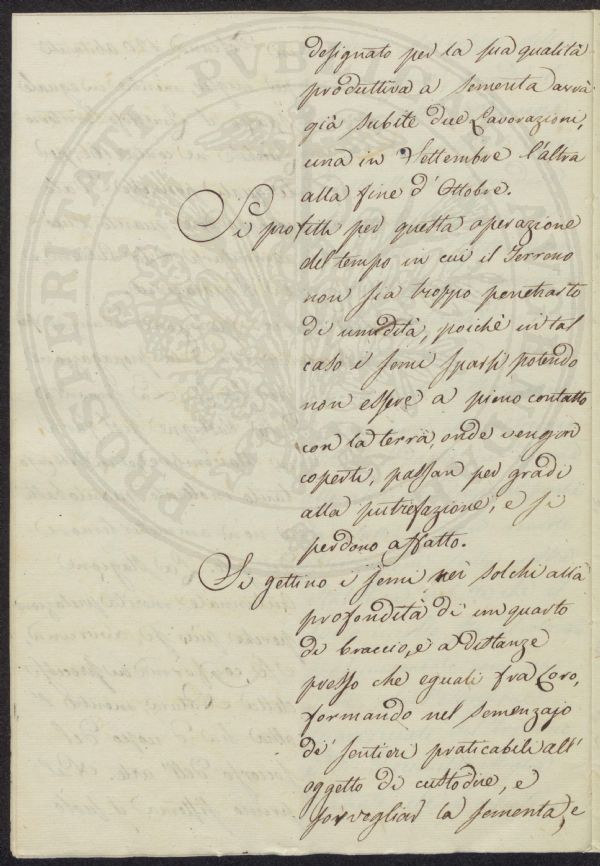 designato per la sua qualità
produttiva a sementa avrà
già subite due Lavorazioni,
una in Settembre l'altra
alla fine d'Ottobre.
Si profitti per questa operazione
del tempo in cui il Terreno
non sia troppo penetrato
di umidità, poichè in tal
caso i semi sparsi potendo
non essere a pieno contatto
con la terra, onde vengon
coperti, passan per gradi
alla putrefazione, e si
perdono affatto.
Si gettino i semi nei solchi alla
profondità di un quarto
di braccio, e a distanze
presso che eguali fra Loro,
formando nel semenzajo
de' sentieri praticabili all'
oggetto di custodire, e
sorvegliar la sementa, e
PROSPERITATI PVBLICAE AVGENDAE